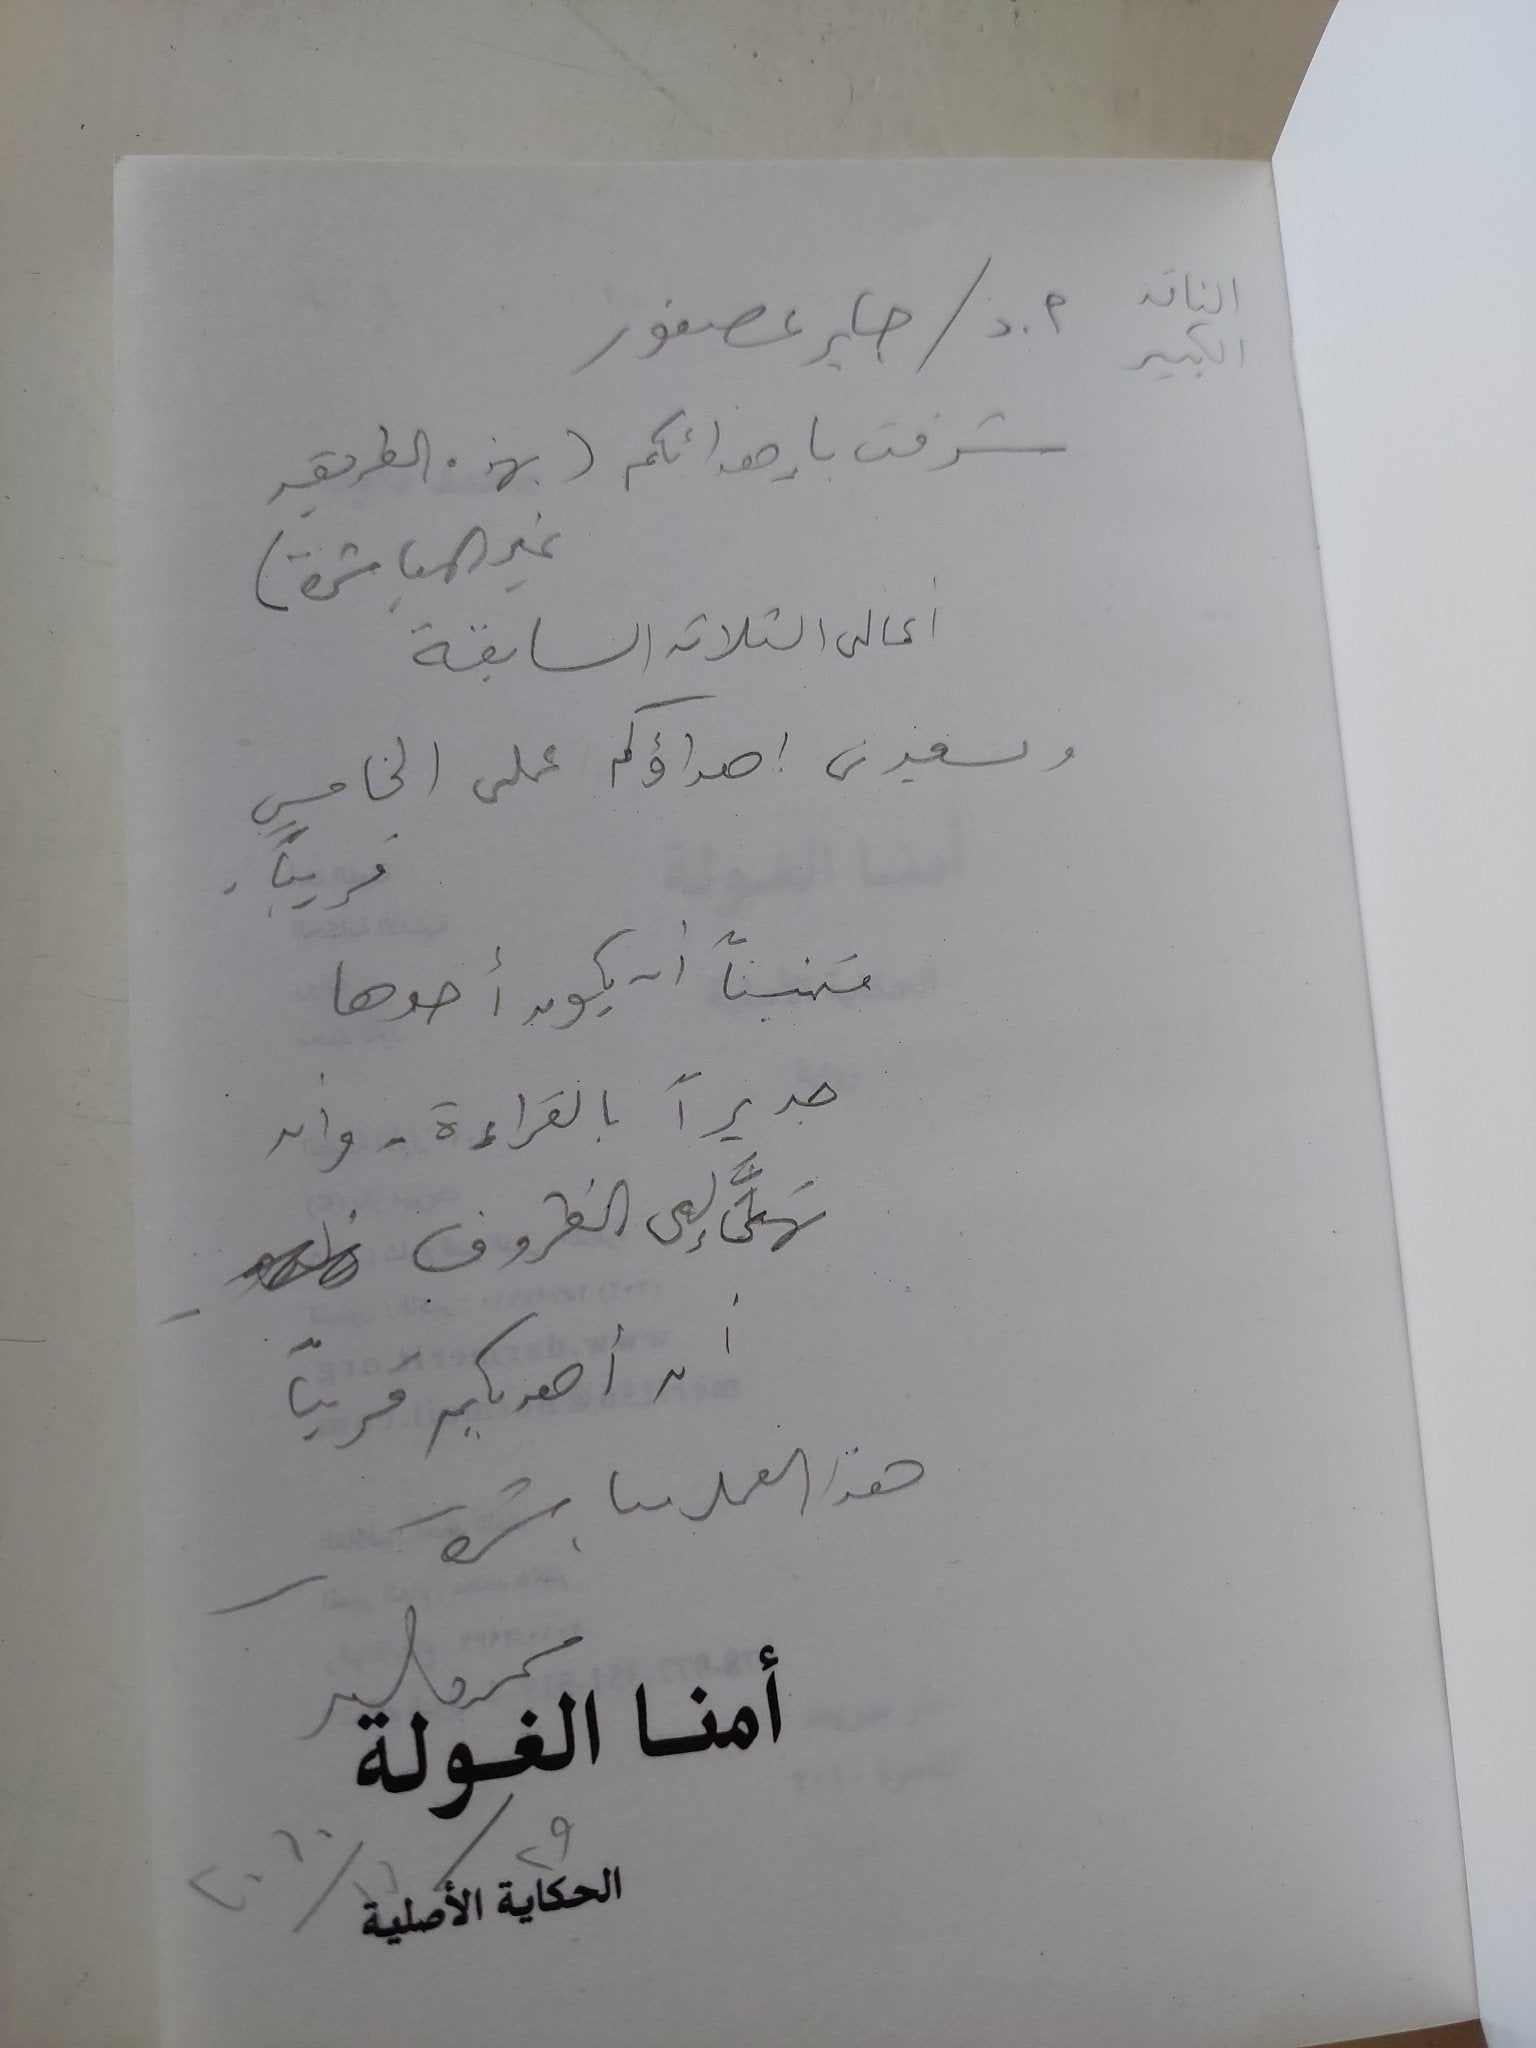 الناقد الكبير أ.د/ جابر عصفور
شرفت بإهدائكم (بهذه الطريقة
غير المباشرة)
أعمالى الثلاثة السابقة
ويسعدنى إهداؤكم عملى الخامس
قريباً.
متمنياً أن يكون أحدها
جديراً بالقراءة - وأن
الظروف
أن أهديكم قريباً
هذا العمل مباشرة
أمنا الغولة
٢٩ / ١٠ / ٢٠١٠
الحكاية الأصلية